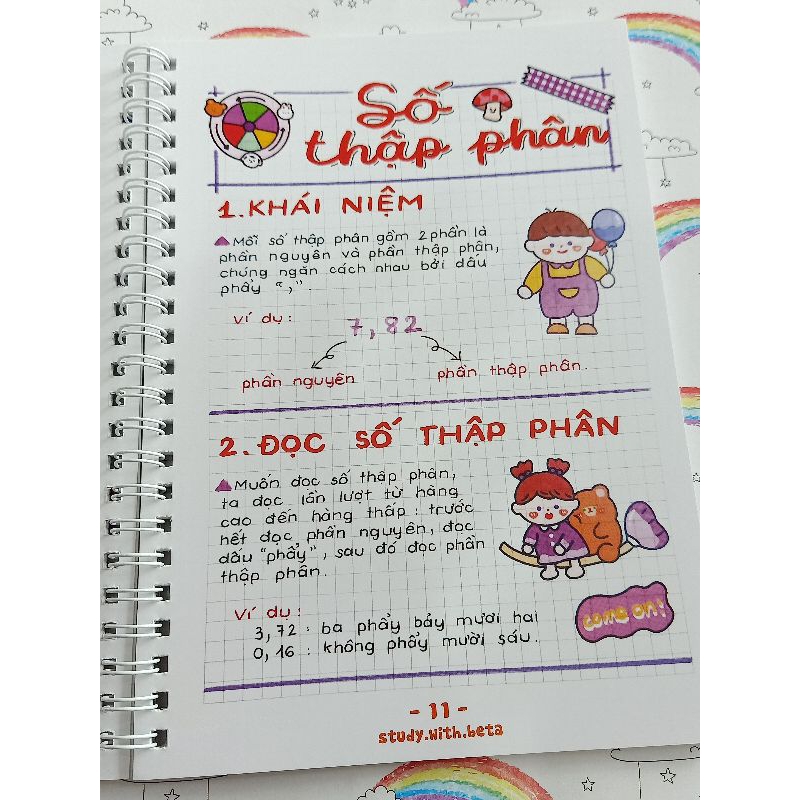 Số
thập phân
1. KHÁI NIỆM
Mỗi số thập phân gồm 2 phần là
phần nguyên và phần thập phân,
chúng ngăn cách nhau bởi dấu
phẩy “,”.
Ví dụ:
7,82
phần nguyên
phần thập phân.
2. ĐỌC SỐ THẬP PHÂN
Muốn đọc số thập phân,
ta đọc lần lượt từ hàng
cao đến hàng thấp: trước
hết đọc phần nguyên, đọc
dấu "phẩy", sau đó đọc phần
thập phân.
Ví dụ:
3,72: ba phẩy bảy mươi hai
0,16: không phẩy mười sáu.
come on!
- 11 -
study.with.beta